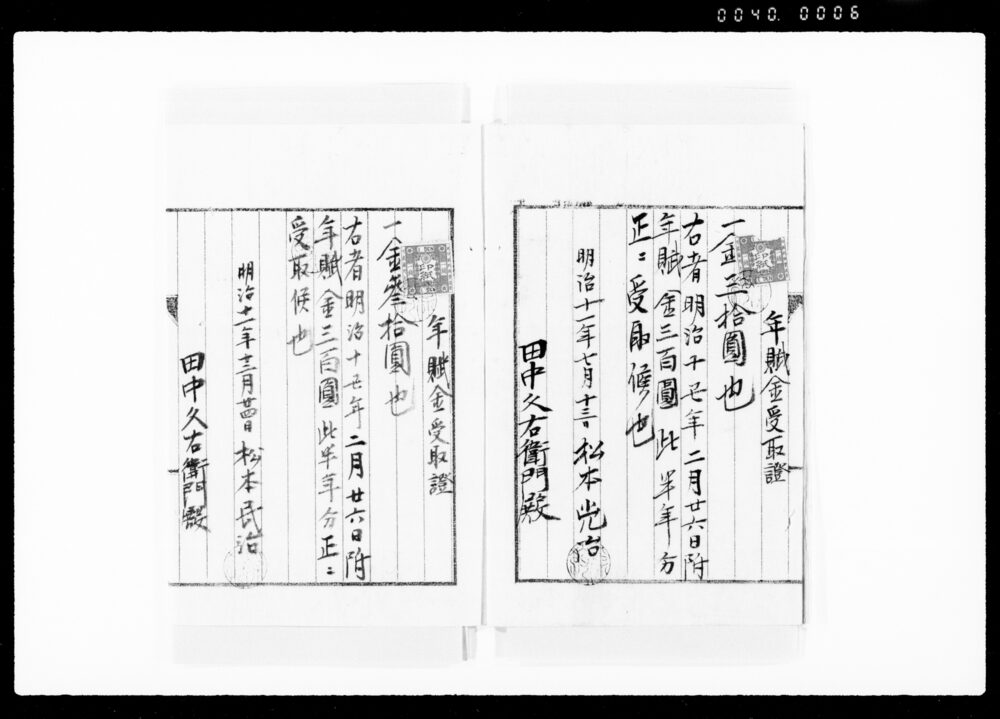 0040. 0006
年賦金受取證
一金三拾圓也
右者明治十丑年二月廿六日附
年賦金三百圓此半年分
正ニ受取候也
明治十一年七月十三日 松本民治
田中久右衛門殿
年賦金受取證
一金参拾圓也
右者明治十丑年二月廿六日附
年賦金三百圓此半年分正ニ
受取候也
明治十一年十二月廿四日 松本民治
田中久右衛門殿